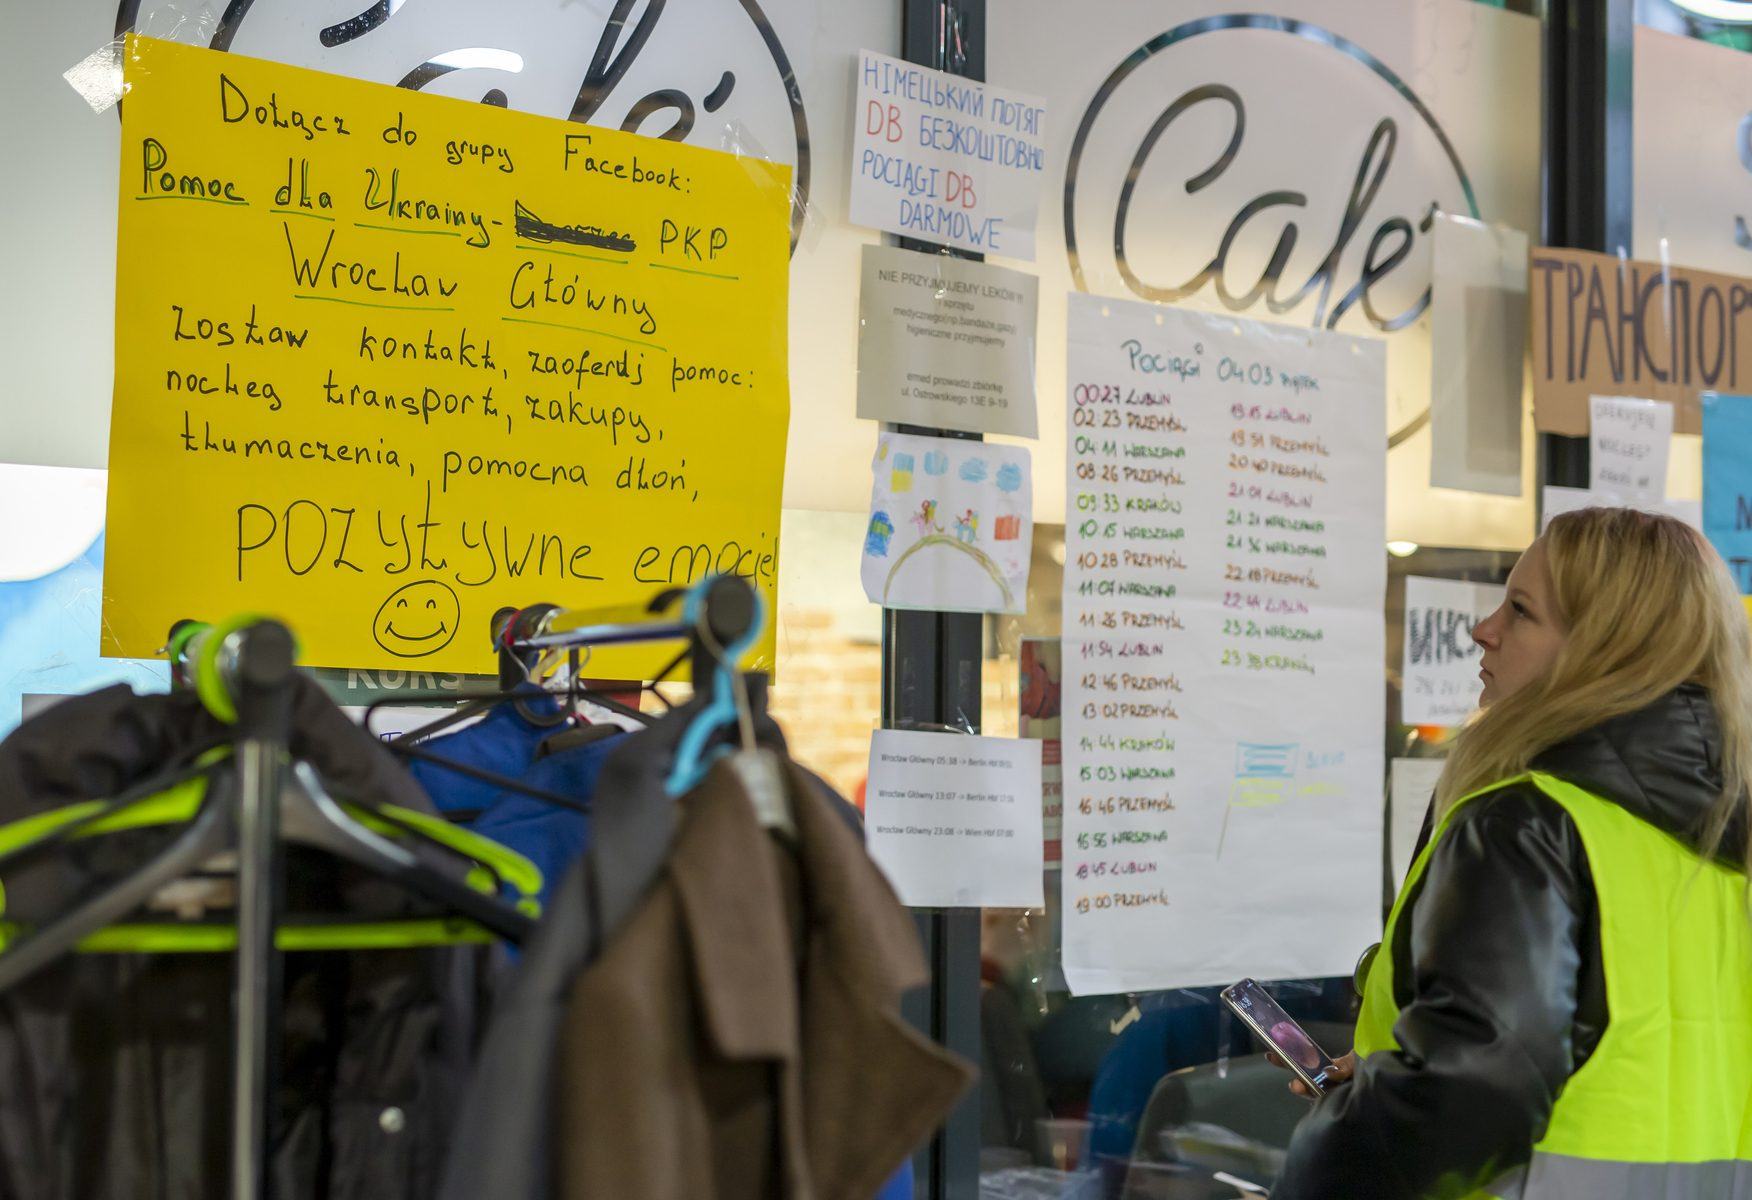 Café
Dołącz do grupy Facebook:
Pomoc dla Ukrainy- PKP
Wrocław Główny
zostaw kontakt, zaoferuj pomoc:
nocleg transport, zakupy,
tłumaczenia, pomocna dłoń,
POZytywne emocje!
KURS
НІМЕЦЬКИЙ ПОТЯГ
DB БЕЗКОШТОВНО
POCIĄGI DB
DARMOWE
NIE PRZYJMUJEMY LEKÓW!!!
i sprzętu
medycznego(np.bandaże,gazy)
higieniczne przyjmujemy
emed prowadzi zbiórkę
ul. Ostrowskiego 13E 9-19
Wrocław Główny 05:38 -> Berlin Hbf
Wrocław Główny 13:07 -> Berlin Hbf
Wrocław Główny 23:08 -> Wien Hbf 07:00
Café
Pociągi 04.03 PIĄTEK
00:27 LUBLIN
02:23 PRZEMYŚL
04:11 WARSZAWA
08:26 PRZEMYŚL
09:33 KRAKÓW
10:15 WARSZAWA
10:28 PRZEMYŚL
11:07 WARSZAWA
11:26 PRZEMYŚL
11:54 LUBLIN
12:46 PRZEMYŚL
13:02 PRZEMYŚL
14:44 KRAKÓW
15:03 WARSZAWA
16:46 PRZEMYŚL
16:56 WARSZAWA
18:45 LUBLIN
19:00 PRZEMYŚL
19:15 LUBLIN
19:51 PRZEMYŚL
20:40 PRZEMYŚL
21:01 LUBLIN
21:21 WARSZAWA
21:36 WARSZAWA
22:18 PRZEMYŚL
22:44 LUBLIN
23:24 WARSZAWA
23:38 KRAKÓW
ТРАНСПОР